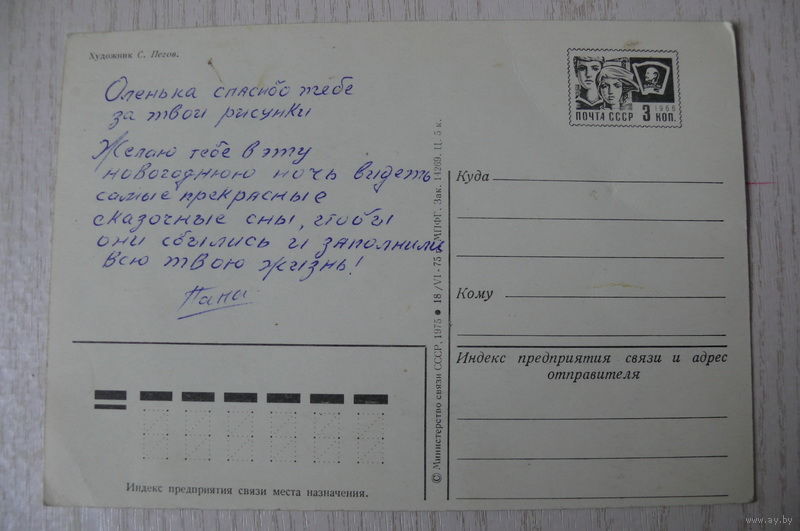 Художник С. Пегов.
Оленька спасибо тебе
за твои рисунки
Желаю тебе в эту
новогоднюю ночь видеть
самые прекрасные
сказочные сны, чтобы
они сбылись и заполнили
всю твою жизнь!
Индекс предприятия связи места назначения.
© Министерство связи СССР, 1975 ● 18/VI-75 МПФГ. Зак. 14269. Ц. 5 к.
1966
ПОЧТА СССР 3 КОП.
Куда
Кому
Индекс предприятия связи и адрес
отправителя
www.ay.by